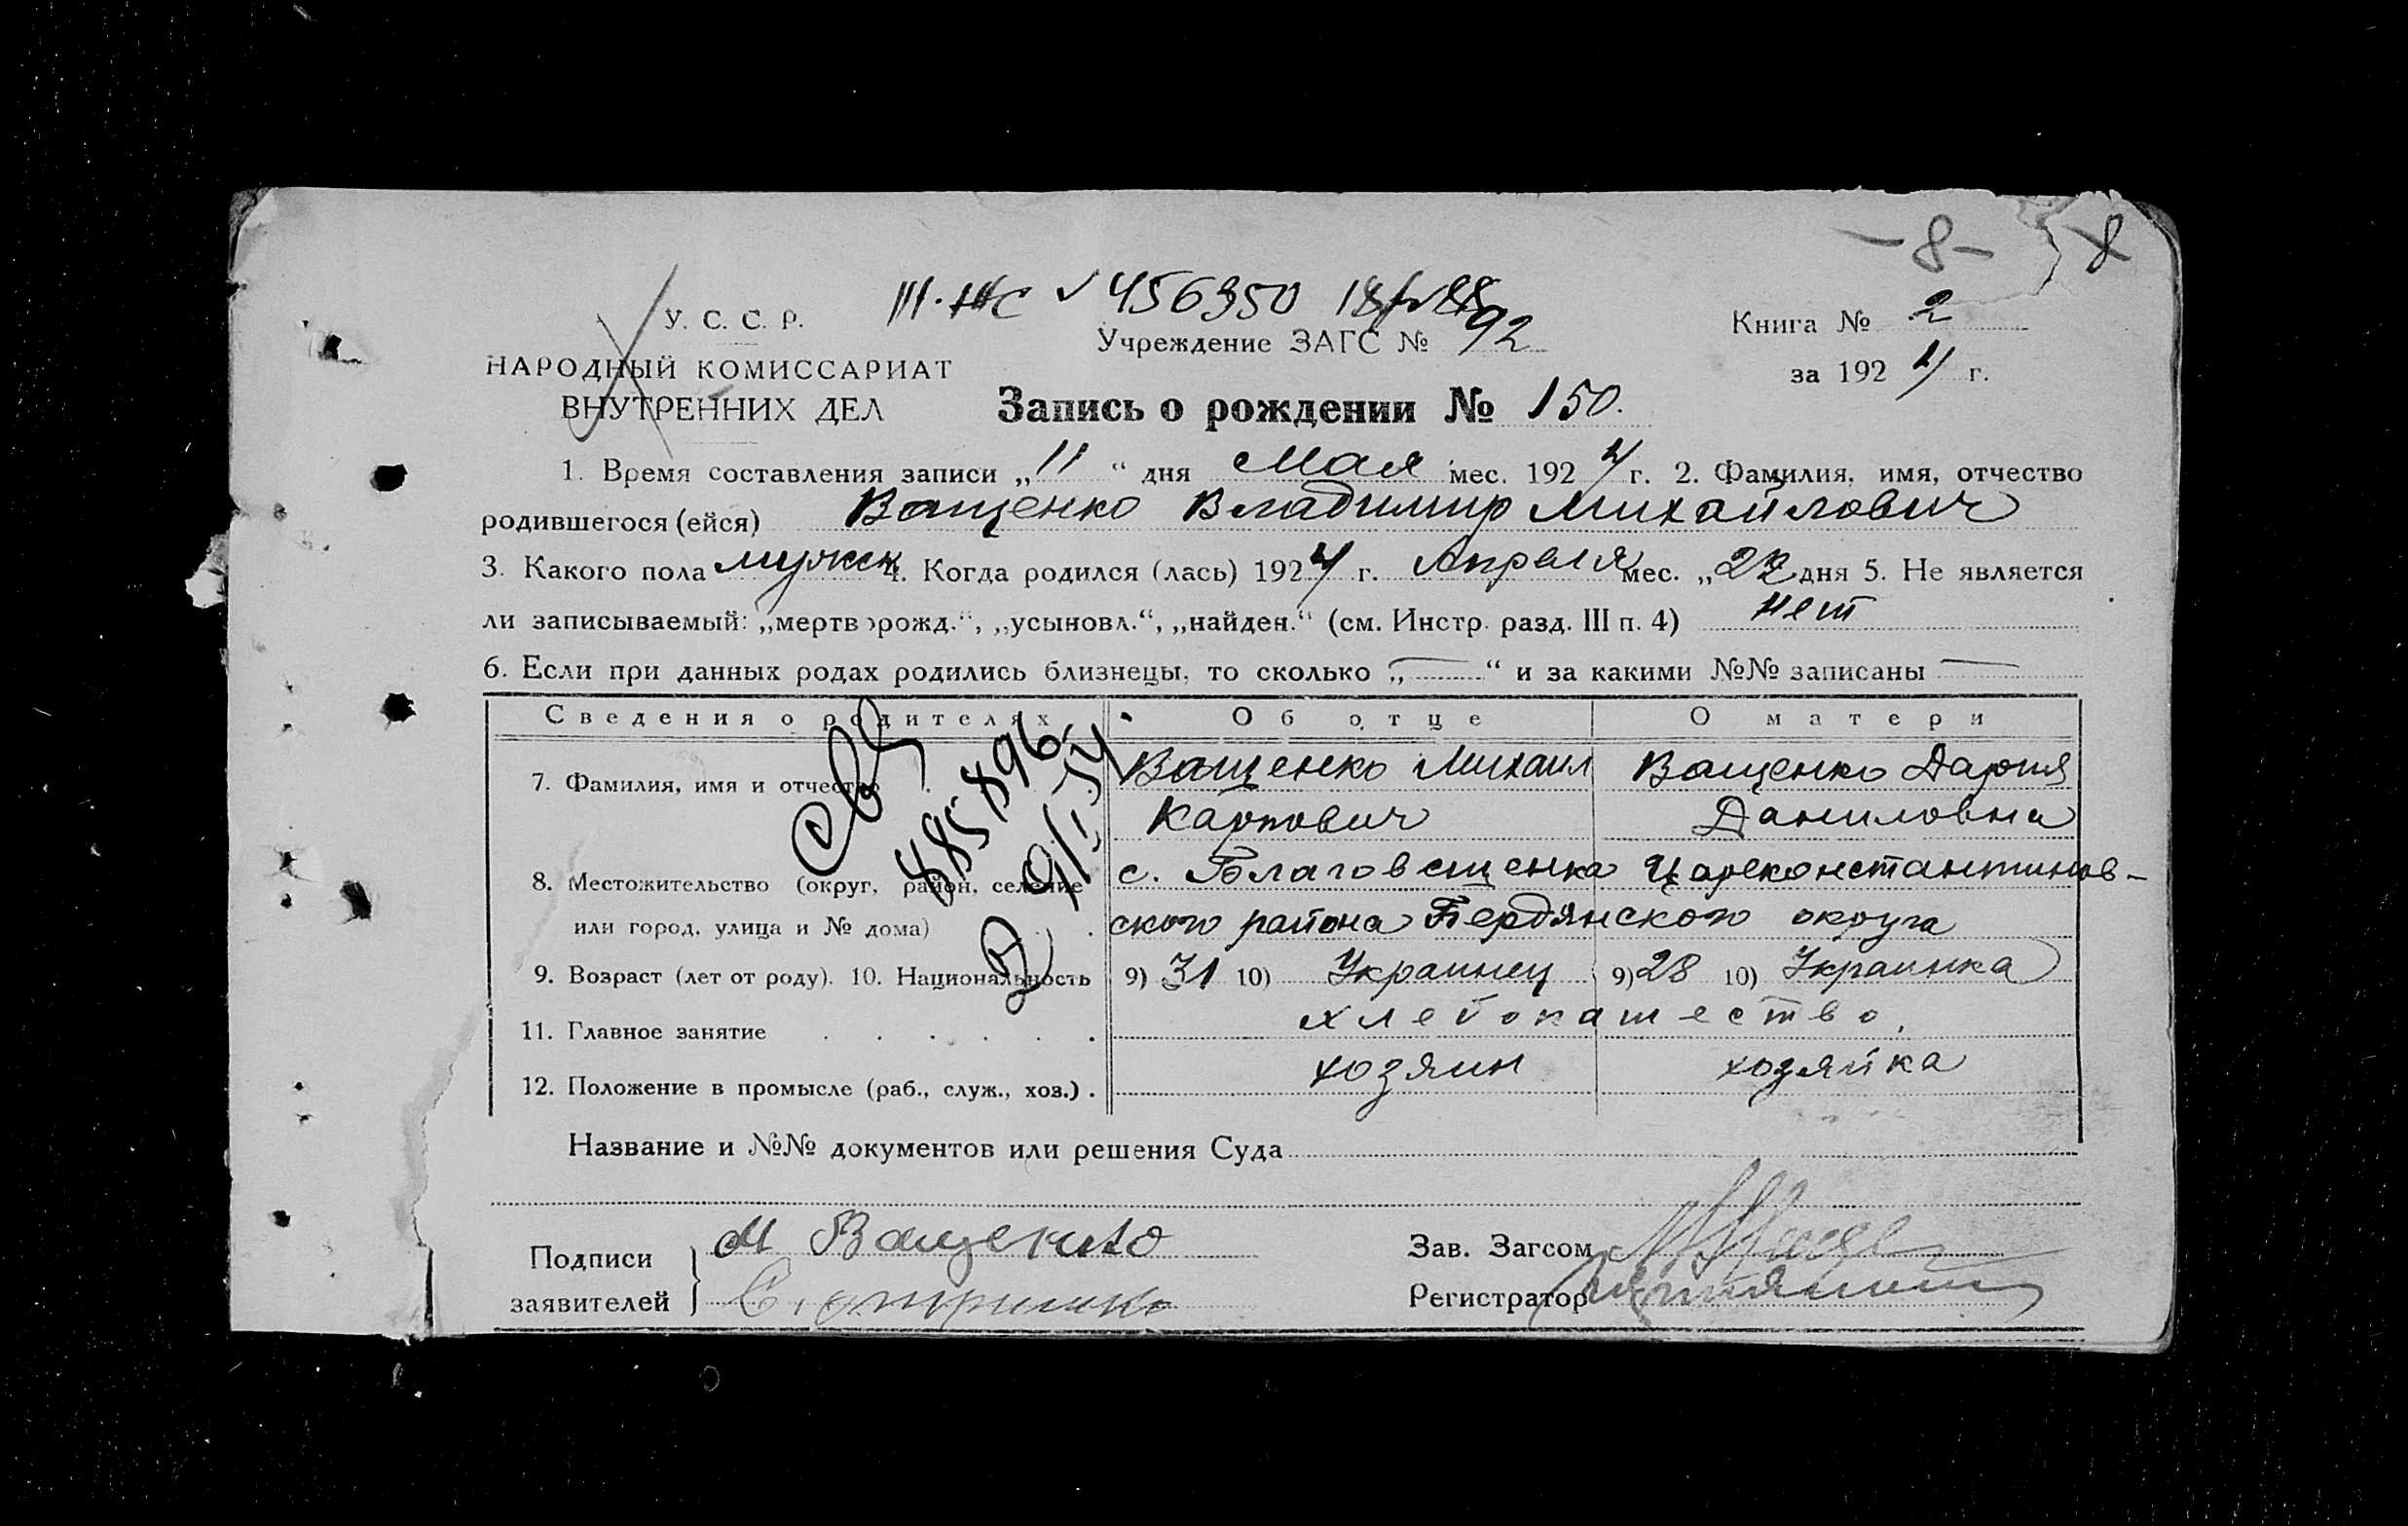 - 8 -
8
У. С. С. Р.
НАРОДНЫЙ КОМИССАРИАТ
ВНУТРЕННИХ ДЕЛ
III-ЖС 456350
Учреждение ЗАГС № 92
Книга № 2
за 1924 г.
Запись о рождении № 150.
1. Время составления записи „11“ дня Мая мес. 1924 г. 2. Фамилия, имя, отчество
родившегося (ейся) Ващенко Владимир Михайлович
3. Какого пола мужск 4. Когда родился (лась) 1924 г. Апреля мес. „ дня 5. Не является
ли записываемый: „мертворожд.“, „усыновл.“, „найден.“ (см. Инстр. разд. III п. 4) нет
6. Если при данных родах родились близнецы, то сколько „—“ и за какими №№ записаны —
Сведения о родителях Об отце О матери
7. Фамилия, имя и отчество Ващенко Михаил Ващенко Дария
Карпович Даниловна
8. Местожительство (округ, район, селение с. Благовещенка Цареконстантинов-
или город, улица и № дома) ского района Бердянского округа
9. Возраст (лет от роду). 10. Национальность 9) 31 10) Украинец 9) 28 10) Украинка
11. Главное занятие хлебопашество.
12. Положение в промысле (раб., служ., хоз.) хозяин хозяйка
485896
Название и №№ документов или решения Суда
Подписи М Ващенко Зав. Загсом
заявителей Регистратор